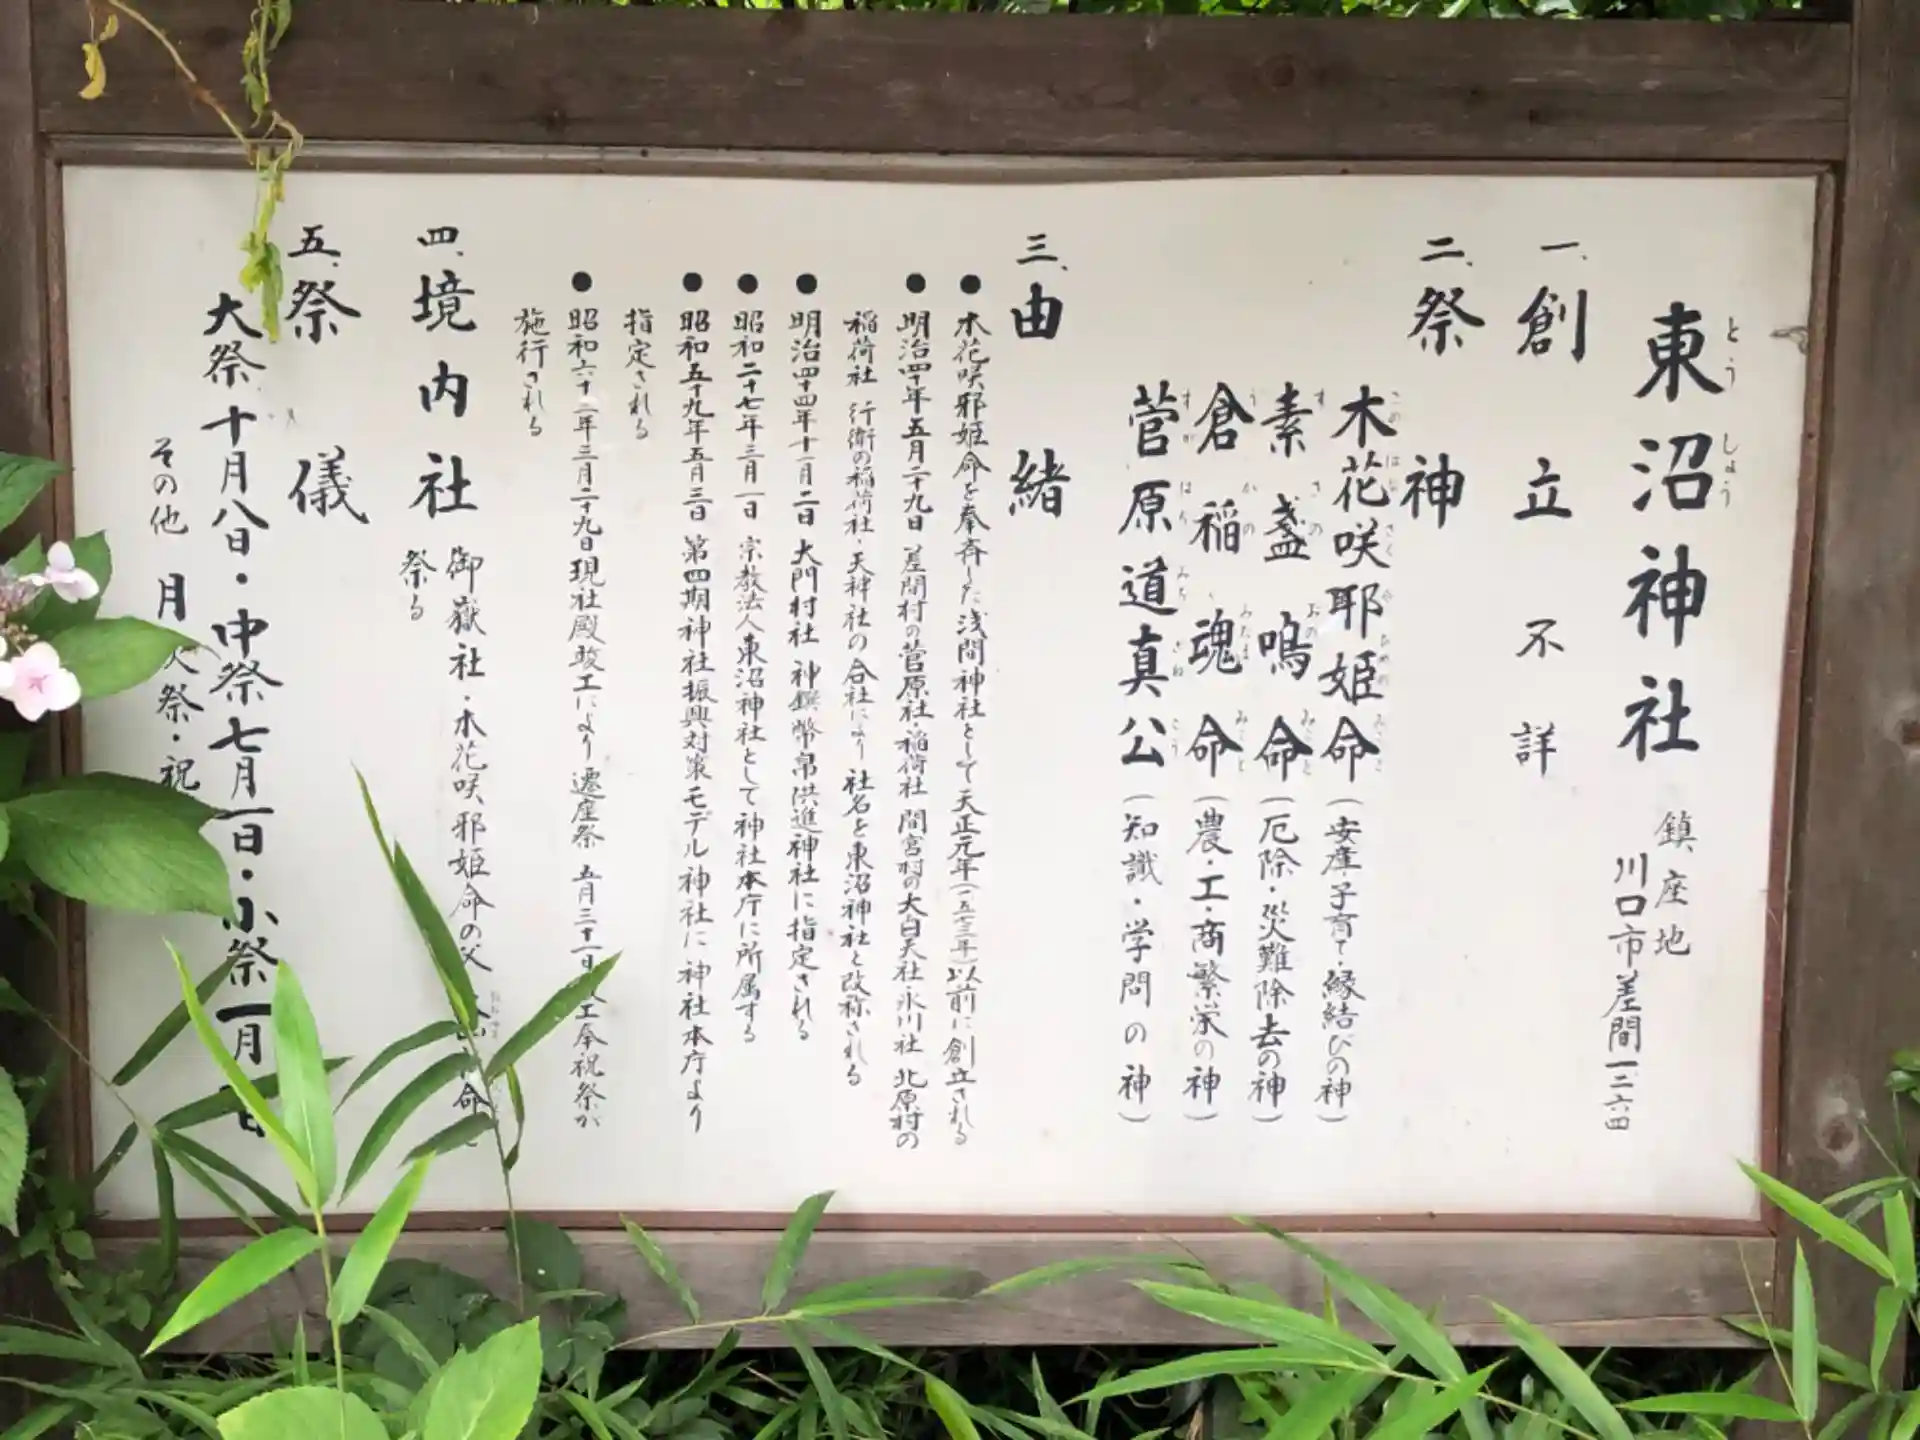 東沼神社
とうしょう
鎮座地
川口市差間一ニ六四
一、創立不詳
二、祭神
木花咲耶姫命（安産・子育て・縁結びの神）
このはなさくやひめのみこと
素盞嗚命（厄除・災難除去の神）
すさのおのみこと
倉稲魂命（農・工・商繁栄の神）
うかのみたまみこと
菅原道真公（知識・学問の神）
すがはらみちざねこう
三、由緒
●木花咲邪姫命を奉斉した浅間神社として天正元年（一五七三年）以前に創立される
●明治四十年五月二十九日 差間村の菅原社・稲荷社 間宮村の大白天社・氷川社 北原村の
稲荷社 行衛の稲荷社・天神社の合社により社名を東沼神社と改称される
●明治四十四年十一月二日 大門村社 神饌幣帛供進神社に指定される
●昭和二十七年三月一日 宗教法人東沼神社として神社本庁に所属する
●昭和五十九年五月三日 第四期神社振興対策モデル神社に神社本庁より
指定される
●昭和六十二年三月二十九日現社殿竣工により遷座祭 五月三十一日 工奉祝祭が
施行される
四、境内社 御嶽社・木花咲邪姫命の父 命
祭る
五、祭儀
大祭十月八日・中祭七月一日・小祭一月 日
その他 月 祭・祝